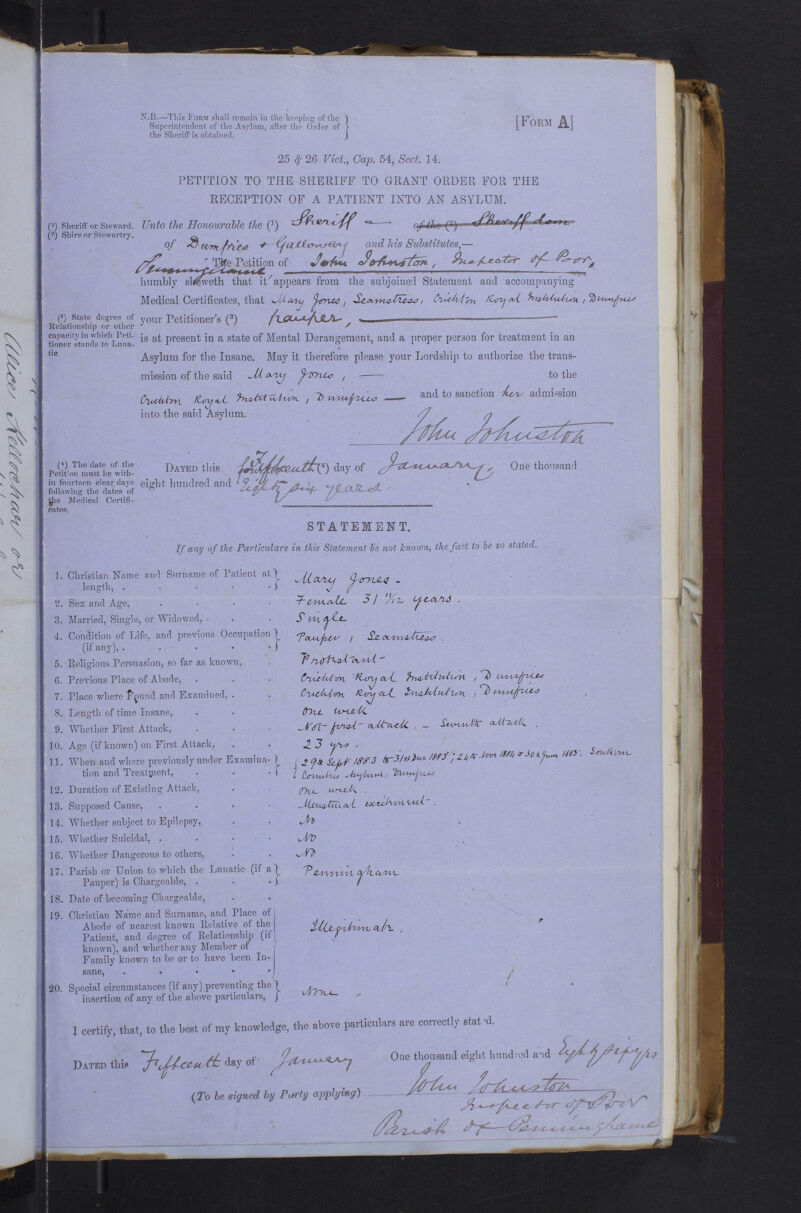 N.B.—This Form shall remain in the keeping of the
Superintendent of the Asylum, after the Order of
the Sheriff is obtained.
[Form A]
25 & 26 Vict., Cap. 54, Sect. 14.
PETITION TO THE SHERIFF TO GRANT ORDER FOR THE
RECEPTION OF A PATIENT INTO AN ASYLUM.
(1) Sheriff or Steward.
(2) Shire or Stewartry.
Unto the Honourable the (1) Sheriff of the (2) Sheriffdom
of Dumfries & Galloway and his Substitutes,—
The Petition of John Johnston, Inspector of Poor,
Penninghame
humbly sheweth that it appears from the subjoined Statement and accompanying
Medical Certificates, that Mary Jones, Seamstress, Crichton Royal Institution, Dumfries
(3) State degree of
Relationship or other
capacity in which Peti-
tioner stands to Luna-
tic.
your Petitioner's (3) pauper,
is at present in a state of Mental Derangement, and a proper person for treatment in an
Asylum for the Insane. May it therefore please your Lordship to authorize the trans-
mission of the said Mary Jones, to the
Crichton Royal Institution, Dumfries and to sanction her admission
into the said Asylum.
John Johnston
(4) The date of the
Petition must be with-
in fourteen clear days
following the dates of
the Medical Certifi-
cates.
Dated this Fifteenth (4) day of January, One thousand
eight hundred and Eighty six years.
STATEMENT.
If any of the Particulars in this Statement be not known, the fact to be so stated.
1. Christian Name and Surname of Patient at
length, . Mary Jones -
2. Sex and Age, Female 31 11/12 years.
3. Married, Single, or Widowed, Single
4. Condition of Life, and previous Occupation
(if any), Pauper, Seamstress.
5. Religious Persuasion, so far as known, Protestant
6. Previous Place of Abode, Crichton Royal Institution, Dumfries
7. Place where Found and Examined, Crichton Royal Institution, Dumfries
8. Length of time Insane, One week
9. Whether First Attack, Not first attack. - Seventh attack.
10. Age (if known) on First Attack, 23 yrs.
11. When and where previously under Examina-
tion and Treatment, 29th Sept 1883 to 31st Dec 1883; 24th Novr 1884 to 30th June 1885. Southern
Counties Asylum, Dumfries
12. Duration of Existing Attack, One week.
13. Supposed Cause, Menstrual excitement.
14. Whether subject to Epilepsy, No
15. Whether Suicidal, No
16. Whether Dangerous to others, No
17. Parish or Union to which the Lunatic (if a
Pauper) is Chargeable, Penningham
18. Date of becoming Chargeable,
19. Christian Name and Surname, and Place of
Abode of nearest known Relative of the
Patient, and degree of Relationship (if
known), and whether any Member of
Family known to be or to have been In-
sane, Illegitimate.
20. Special circumstances (if any) preventing the
insertion of any of the above particulars, None
I certify, that, to the best of my knowledge, the above particulars are correctly stated.
Dated this Fifteenth day of January One thousand eight hundred and Eighty six yrs
(To be signed by Party applying) John Johnston
Inspector of Poor
Parish of Penninghame